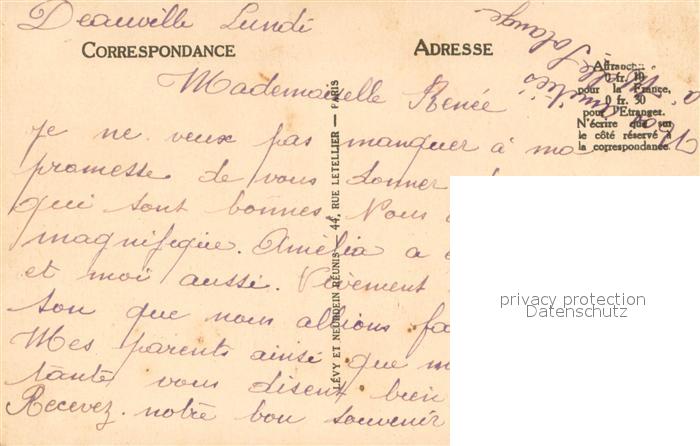 Deauville Lundi
CORRESPONDANCE
ADRESSE
Affranch
0 fr. 10
pour la France,
0 fr. 30
pour l'Etranger.
N'écrire que sur
le côté réservé à
la correspondance.
Mademoiselle Renée
Je ne veux pas manquer à ma
promesse de vous donner
qui sont bonnes. Nous
magnifique. Amélia a
et moi aussi. Vivement
son que nous allions fa
Mes parents ainsi que m
tante vous disent bien
Recevez notre bon souvenir
amitiés
à Mlle Solange
LÉVY ET NEURDEIN RÉUNIS — 44, RUE LETELLIER — PARIS
privacy protection
Datenschutz